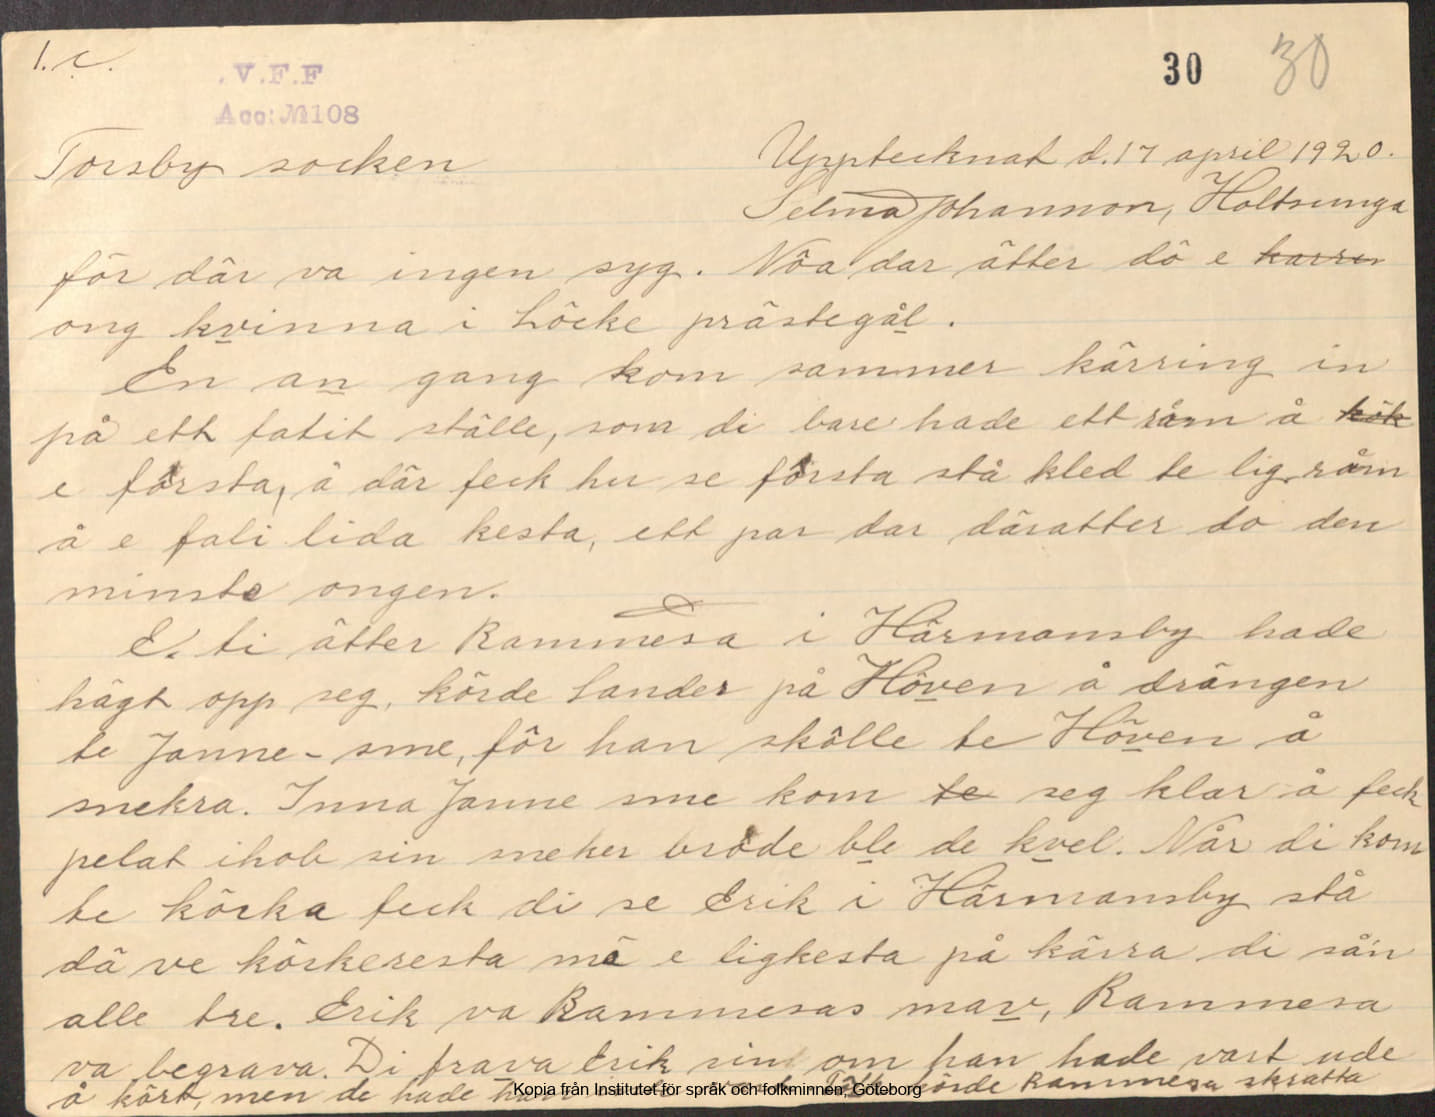 1. c.
V.F.F
Acc: № 108
30 30
Torsby socken
Upptecknat d. 17 april 1920.
Selma Johannson, Holtsunga
för där va ingen syg. Nôa dar ätter dö e karrin
ong kvinna i Löcke prästegål.
En an gang kom sammer kärring in
på ett fatit ställe, som di bare hade ett råm å kök
e fôrsta, å där feck hu se fôrsta stå kled te lig råm
å e fali lida kesta, ett par dar däratter dö den
minste ongen.
E. ti ätter Rammesa i Härmansby hade
hägt opp seg, körde Lander på Höven å drängen
te Janne-sme, för han skölle te Höven å
snekra. Inna Janne sme kom te seg klar å feck
pelat ihob sin sneker bröde ble de kvel. Når di kom
te körka feck di se Erik i Härmansby stå
dä ve körkeresta mä e ligkesta på kärra di sån
alle tre. Erik va Rammesas man, Rammesa
va begrava. Di frava Erik sin om han hade vart ude
å kört, men de hade han körde Rammesa skratta
Kopia från Institutet för språk och folkminnen, Göteborg